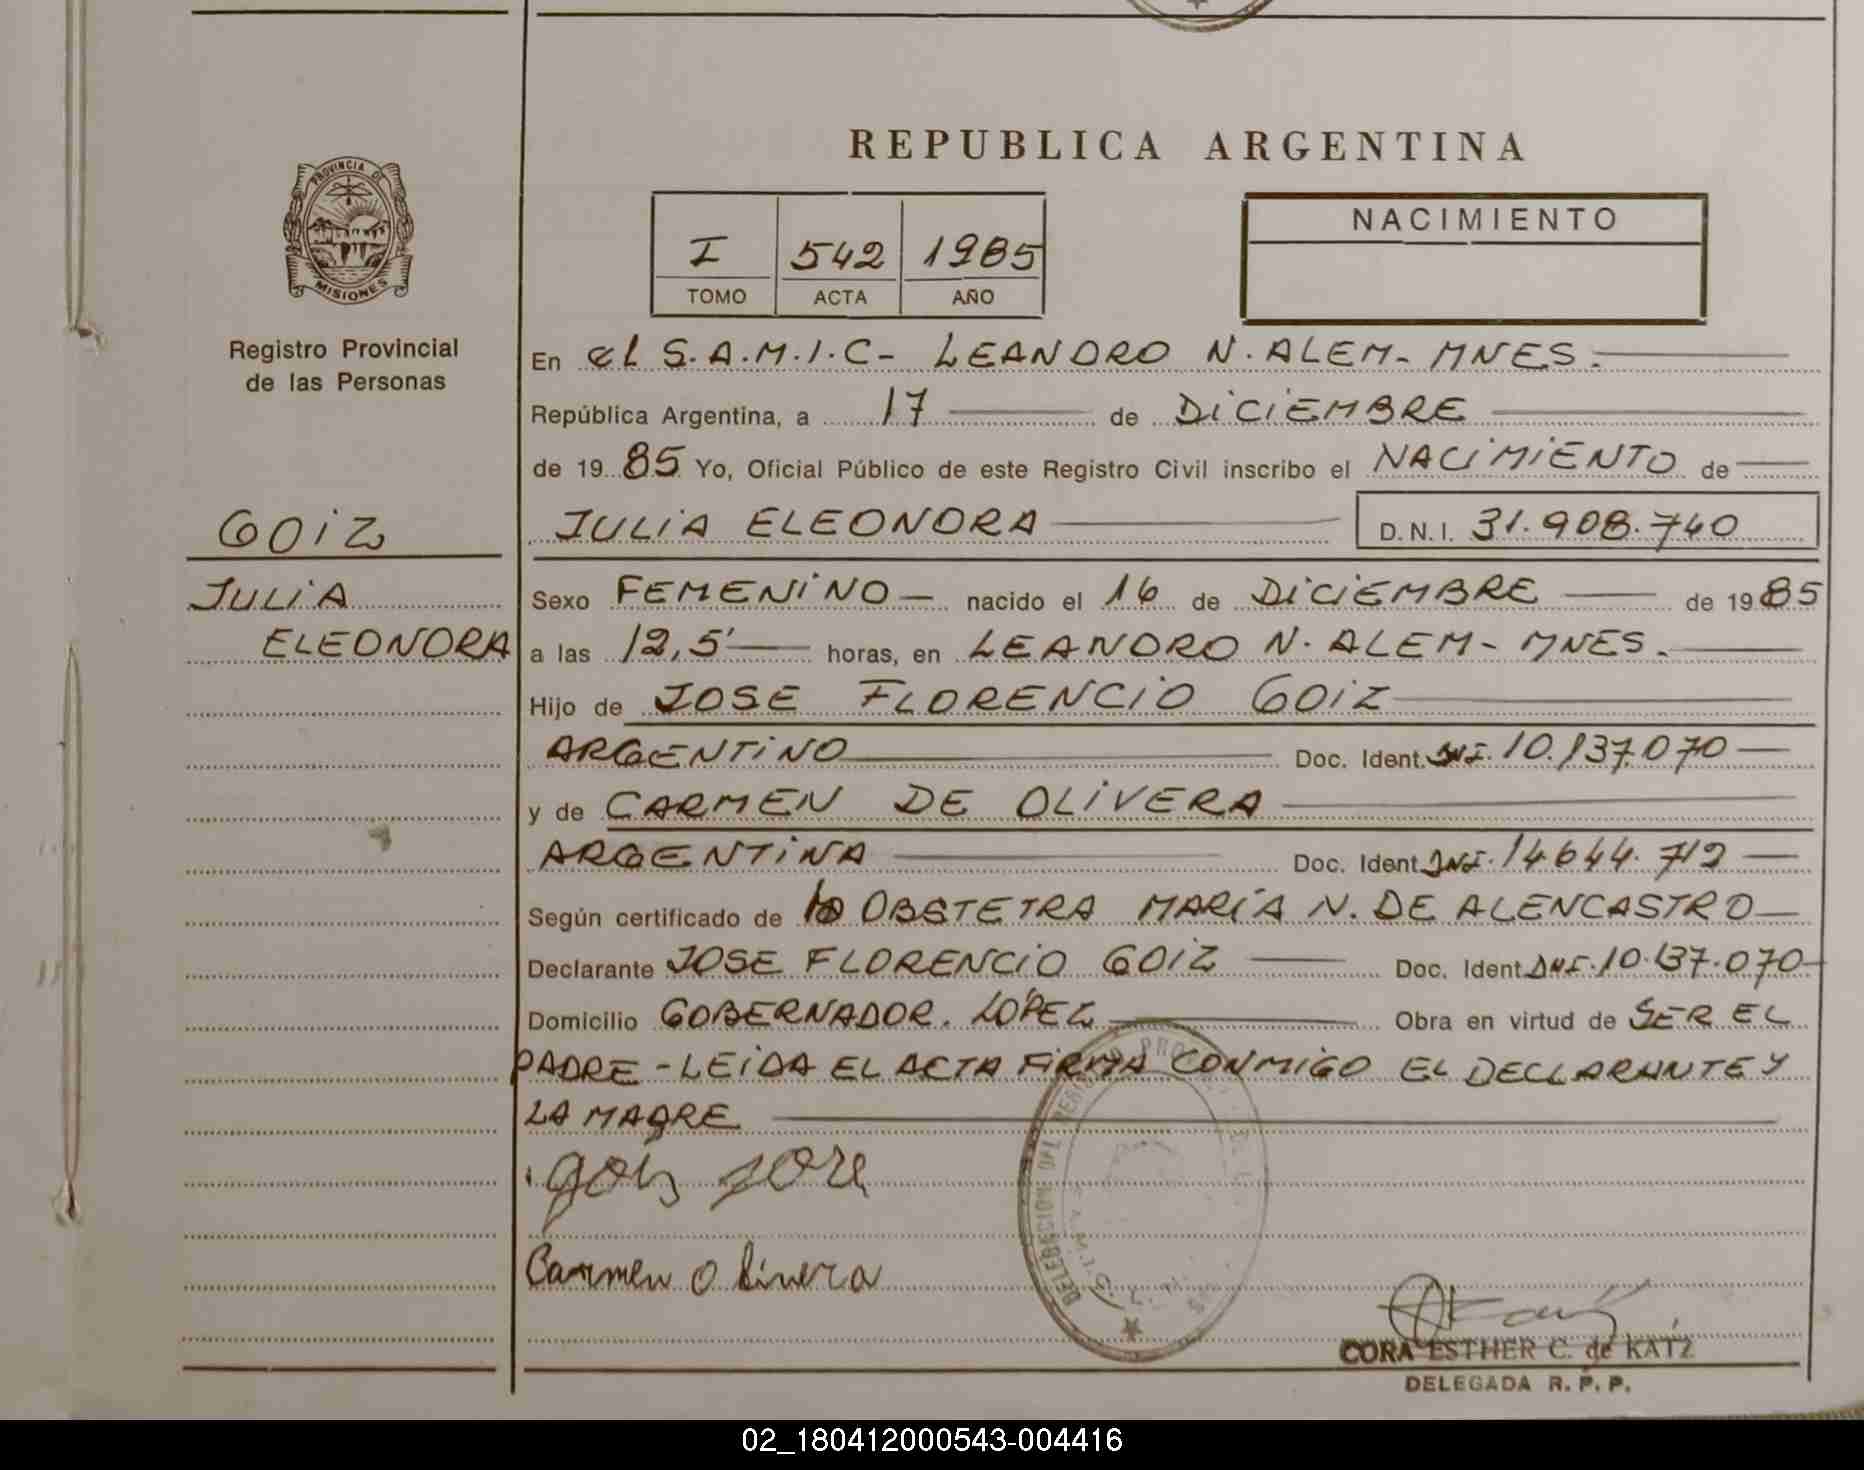 REPUBLICA ARGENTINA
PROVINCIA DE
MISIONES
Registro Provincial
de las Personas
I 542 1985
TOMO ACTA AÑO
NACIMIENTO
En el S.A.M.I.C- LEANDRO N. ALEM- MNES.
República Argentina, a 17 de DICIEMBRE
de 1985 Yo, Oficial Público de este Registro Civil inscribo el NACIMIENTO de
GOIZ
JULIA ELEONORA D.N.I. 31.908.740
JULIA
ELEONORA
Sexo FEMENINO — nacido el 16 de DICIEMBRE de 1985
a las 12,5' horas, en LEANDRO N. ALEM- MNES.
Hijo de JOSE FLORENCIO GOIZ
ARGENTINO Doc. Ident. DNI. 10.137.070
y de CARMEN DE OLIVERA
ARGENTINA Doc. Ident. DNI. 14.644.712
Según certificado de OBSTETRA MARÍA N. DE ALENCASTRO
Declarante JOSE FLORENCIO GOIZ Doc. Ident. DNI. 10.137.070
Domicilio GOBERNADOR. LÓPEZ Obra en virtud de SER EL
PADRE - LEIDA EL ACTA FIRMA CONMIGO EL DECLARANTE Y
LA MADRE
goiz jose
Carmen Olivera
CORA ESTHER C. de KATZ
DELEGADA R. P. P.
02_180412000543-004416